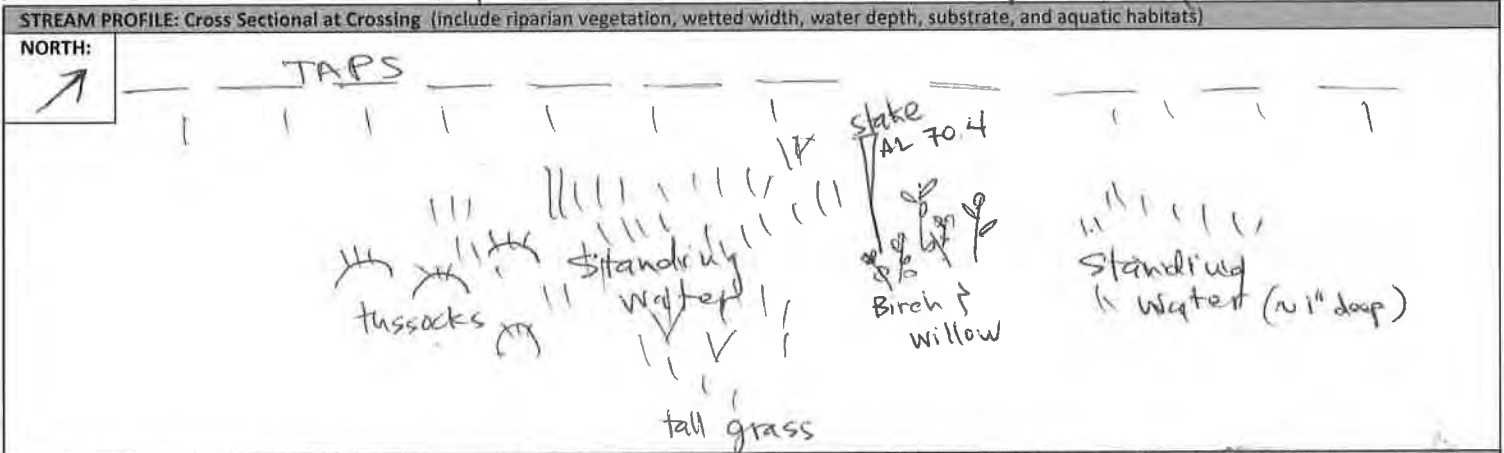 STREAM PROFILE: Cross Sectional at Crossing (include riparian vegetation, wetted width, water depth, substrate, and aquatic habitats)
NORTH:
TAPS
stake
AL 70.4
Standing
water
tussocks
Birch &
willow
Standing
water (~1" deep)
tall grass